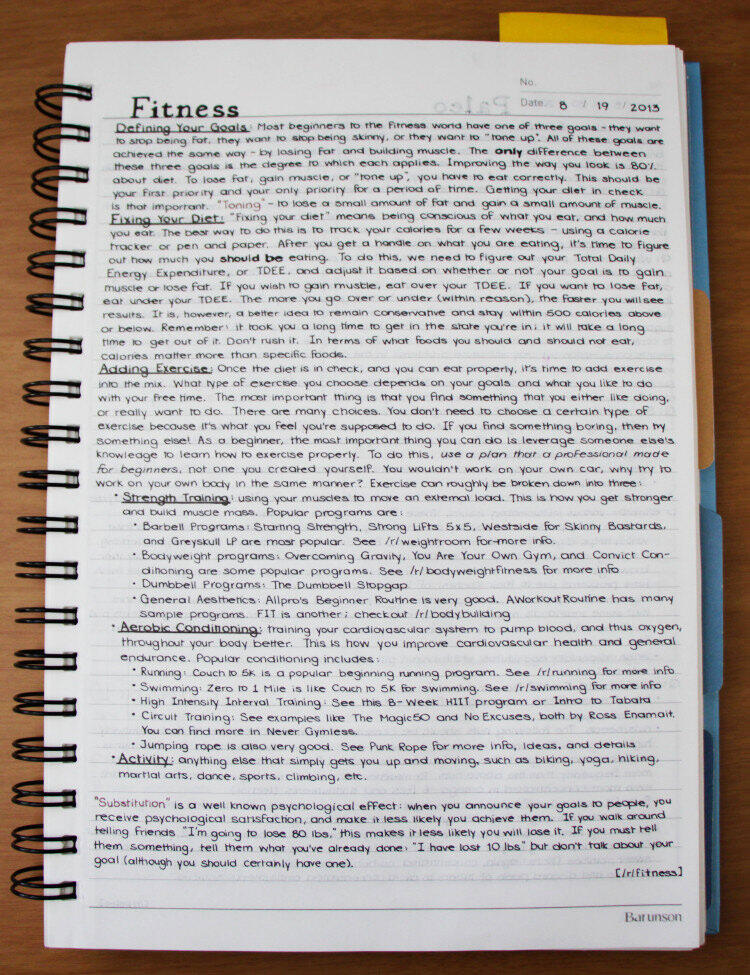 No.
Date. 8 / 19 / 2013
Fitness
Defining Your Goals: Most beginners to the fitness world have one of three goals - they want
to stop being fat, they want to stop being skinny, or they want to "tone up". All of these goals are
achieved the same way - by losing fat and building muscle. The only difference between
these three goals is the degree to which each applies. Improving the way you look is 80%
about diet. To lose fat, gain muscle, or "tone up", you have to eat correctly. This should be
your first priority and your only priority for a period of time. Getting your diet in check
is that important. "Toning" - to lose a small amount of fat and gain a small amount of muscle.
Fixing Your Diet: "Fixing your diet" means being conscious of what you eat, and how much
you eat. The best way to do this is to track your calories for a few weeks - using a calorie
tracker or pen and paper. After you get a handle on what you are eating, it's time to figure
out how much you should be eating. To do this, we need to figure out your Total Daily
Energy Expenditure, or TDEE, and adjust it based on whether or not your goal is to gain
muscle or lose fat. If you wish to gain muscle, eat over your TDEE. If you want to lose fat,
eat under your TDEE. The more you go over or under (within reason), the faster you will see
results. It is, however, a better idea to remain conservative and stay within 500 calories above
or below. Remember: it took you a long time to get in the state you're in; it will take a long
time to get out of it. Don't rush it. In terms of what foods you should and should not eat,
calories matter more than specific foods.
Adding Exercise: Once the diet is in check, and you can eat properly, it's time to add exercise
into the mix. What type of exercise you choose depends on your goals and what you like to do
with your free time. The most important thing is that you find something that you either like doing,
or really want to do. There are many choices. You don't need to choose a certain type of
exercise because it's what you feel you're supposed to do. If you find something boring, then try
something else! As a beginner, the most important thing you can do is leverage someone else's
knowledge to learn how to exercise properly. To do this, use a plan that a professional made
for beginners, not one you created yourself. You wouldn't work on your own car, why try to
work on your own body in the same manner? Exercise can roughly be broken down into three:
• Strength Training: using your muscles to move an external load. This is how you get stronger
and build muscle mass. Popular programs are:
• Barbell Programs: Starting Strength, Strong Lifts 5x5, Westside for Skinny Bastards,
and Greyskull LP are most popular. See /r/weightroom for more info.
• Bodyweight programs: Overcoming Gravity, You Are Your Own Gym, and Convict Con-
ditioning are some popular programs. See /r/bodyweightfitness for more info
• Dumbbell Programs: The Dumbbell Stopgap
• General Aesthetics: Allpro's Beginner Routine is very good. AWorkoutRoutine has many
sample programs. FIT is another; checkout /r/bodybuilding
• Aerobic Conditioning: training your cardiovascular system to pump blood, and thus oxygen,
throughout your body better. This is how you improve cardiovascular health and general
endurance. Popular conditioning includes:
• Running: Couch to 5K is a popular beginning running program. See /r/running for more info
• Swimming: Zero to 1 Mile is like Couch to 5K for swimming. See /r/swimming for more info
• High Intensity Interval Training: See this 8-Week HIIT program or Intro to Tabata
• Circuit Training: See examples like The Magic50 and No Excuses, both by Ross Enamait.
You can find more in Never Gymless.
• Jumping rope is also very good. See Punk Rope for more info, ideas, and details
• Activity: anything else that simply gets you up and moving, such as biking, yoga, hiking,
martial arts, dance, sports, climbing, etc.
"Substitution" is a well known psychological effect: when you announce your goals to people, you
receive psychological satisfaction, and make it less likely you achieve them. If you walk around
telling friends "I'm going to lose 80 lbs," this makes it less likely you will lose it. If you must tell
them something, tell them what you've already done: "I have lost 10 lbs" but don't talk about your
goal (although you should certainly have one).
[/r/fitness]
Barunson